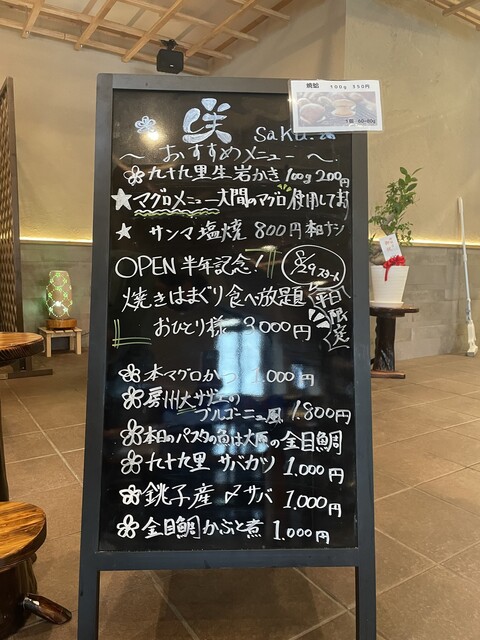 焼蛤 100g 350円
咲 saku.
～ おすすめメニュー ～
九十九里生岩かき 100g 200円
★マグロメニュー大間のマグロ使用して
★ サンマ塩焼 800円
OPEN半年記念!
8/29スタート
焼きはまぐり食べ放題
平日限定
おひとり様 3,000円
本マグロかつ 1.000円
房州大サザエの
ブルゴーニュ風 1.800円
本日のパスタの魚は大原の金目鯛
九十九里 サバカツ 1,000円
銚子産 〆サバ 1,000円
金目鯛かぶと煮 1.000円